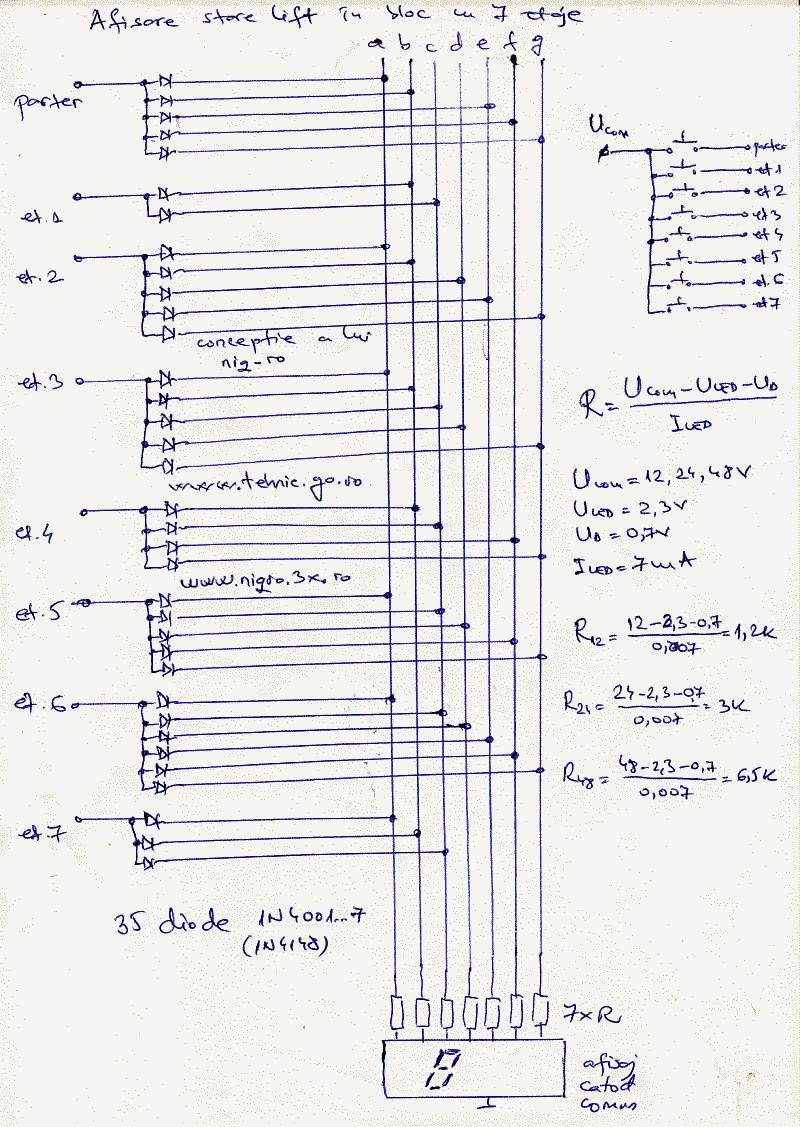 Afisare stare lift în bloc cu 7 etaje
a b c d e f g
parter
et.1
et.2
conceptie a lui
niq-ro
et.3
www.tehnic.go.ro
et.4
www.niqro.3x.ro
et.5
et.6
et.7
35 diode 1N4001...7
(1N4148)
7xR
afisaj
catod
comun
Ucom
parter
et 1
et 2
et 3
et 4
et 5
et.6
et 7
R = (Ucom - ULED - UD) / ILED
Ucom = 12, 24, 48V
ULED = 2,3V
UD = 0,7V
ILED = 7mA
R12 = (12-2,3-0,7) / 0,007 = 1,2K
R24 = (24-2,3-0,7) / 0,007 = 3K
R48 = (48-2,3-0,7) / 0,007 = 6,5K